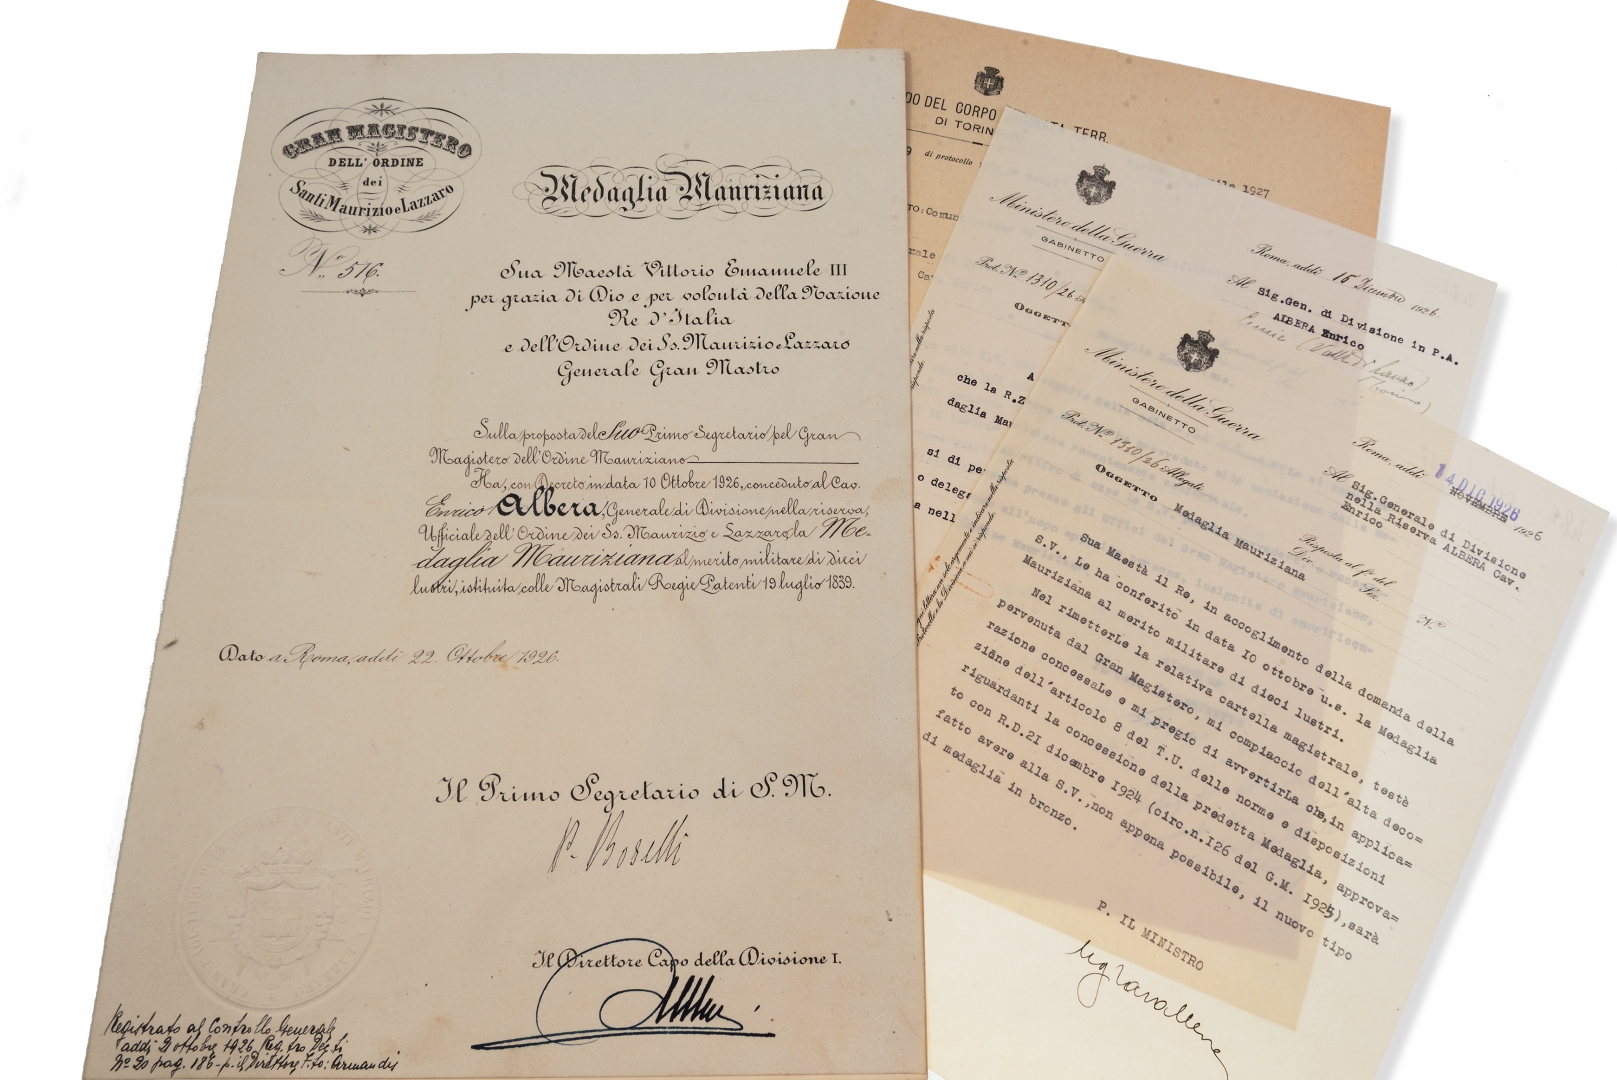 GRAN MAGISTERO
DELL'ORDINE
dei
Santi Maurizio e Lazzaro
N.º 516.
Medaglia Mauriziana
Sua Maestà Vittorio Emanuele III
per grazia di Dio e per volontà della Nazione
Re d'Italia
e dell'Ordine dei Ss. Maurizio e Lazzaro
Generale Gran Mastro
Sulla proposta del Suo Primo Segretario pel Gran
Magistero dell'Ordine Mauriziano
Ha, con Decreto in data 10 Ottobre 1926, conceduto al Cav.
Enrico Albera, Generale di Divisione nella riserva,
Ufficiale dell'Ordine dei Ss. Maurizio e Lazzaro la Me-
daglia Mauriziana al merito militare di dieci
lustri, istituita colle Magistrali Regie Patenti 19 luglio 1839.
Dato a Roma, addì 22 Ottobre 1926.
Il Primo Segretario di S. M.
P. Boselli
Il Direttore Capo della Divisione I.
Registrato al Controllo Generale
addì 21 ottobre 1926 Reg.tro
Nº 20 pag. 186 - p. il Direttore F.to: Armandis
DO DEL CORPO
TERR.
DI TORIN
9 di protocollo
1927
TO: Comun
Ministero della Guerra
GABINETTO
Prot. Nº 1310/26
OGGETTO
Roma, addì 15 Dicembre 1926.
Al Sig. Gen. di Divisione in P.A.
ALBERA Enrico
A
che la R.Z
daglia Mau
si di pe
o delega
a nell
Ministero della Guerra
GABINETTO
Prot. Nº 1310/26 Allegati
OGGETTO Medaglia Mauriziana
Roma, addì 14 DIC 1926
NOVEMBRE 1926
Al Sig. Generale di Divisione
nella Riserva ALBERA Cav.
Enrico
Risposta al f.º del
Div. Sez. Nº
Sua Maestà il Re, in accoglimento della domanda della
S.V., Le ha conferito in data IO ottobre u.s. la Medaglia
Mauriziana al merito militare di dieci lustri.
Nel rimetterLe la relativa cartella magistrale, testè
pervenuta dal Gran Magistero, mi compiaccio dell'alta deco=
razione concessaLe e mi pregio di avvertirLa che, in applica=
zione dell'articolo 8 del T.U. delle norme e disposizioni
riguardanti la concessione della predetta Medaglia, approva=
to con R.D.2I dicembre I924 (circ.n.I26 del G.M. I925), sarà
fatto avere alla S.V., non appena possibile, il nuovo tipo
di medaglia in bronzo.
P. IL MINISTRO